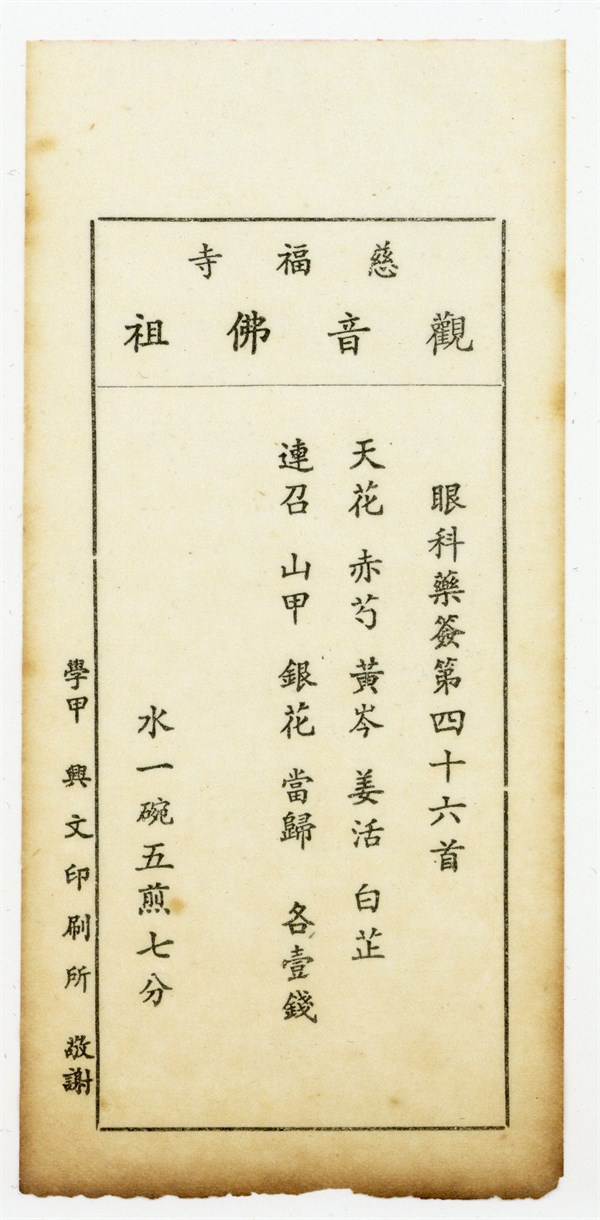 慈福寺
觀音佛祖
眼科藥簽第四十六首
天花 赤芍 黃岑 姜活 白芷
連召 山甲 銀花 當歸 各壹錢
水一碗五煎七分
學甲 興文印刷所 敬謝